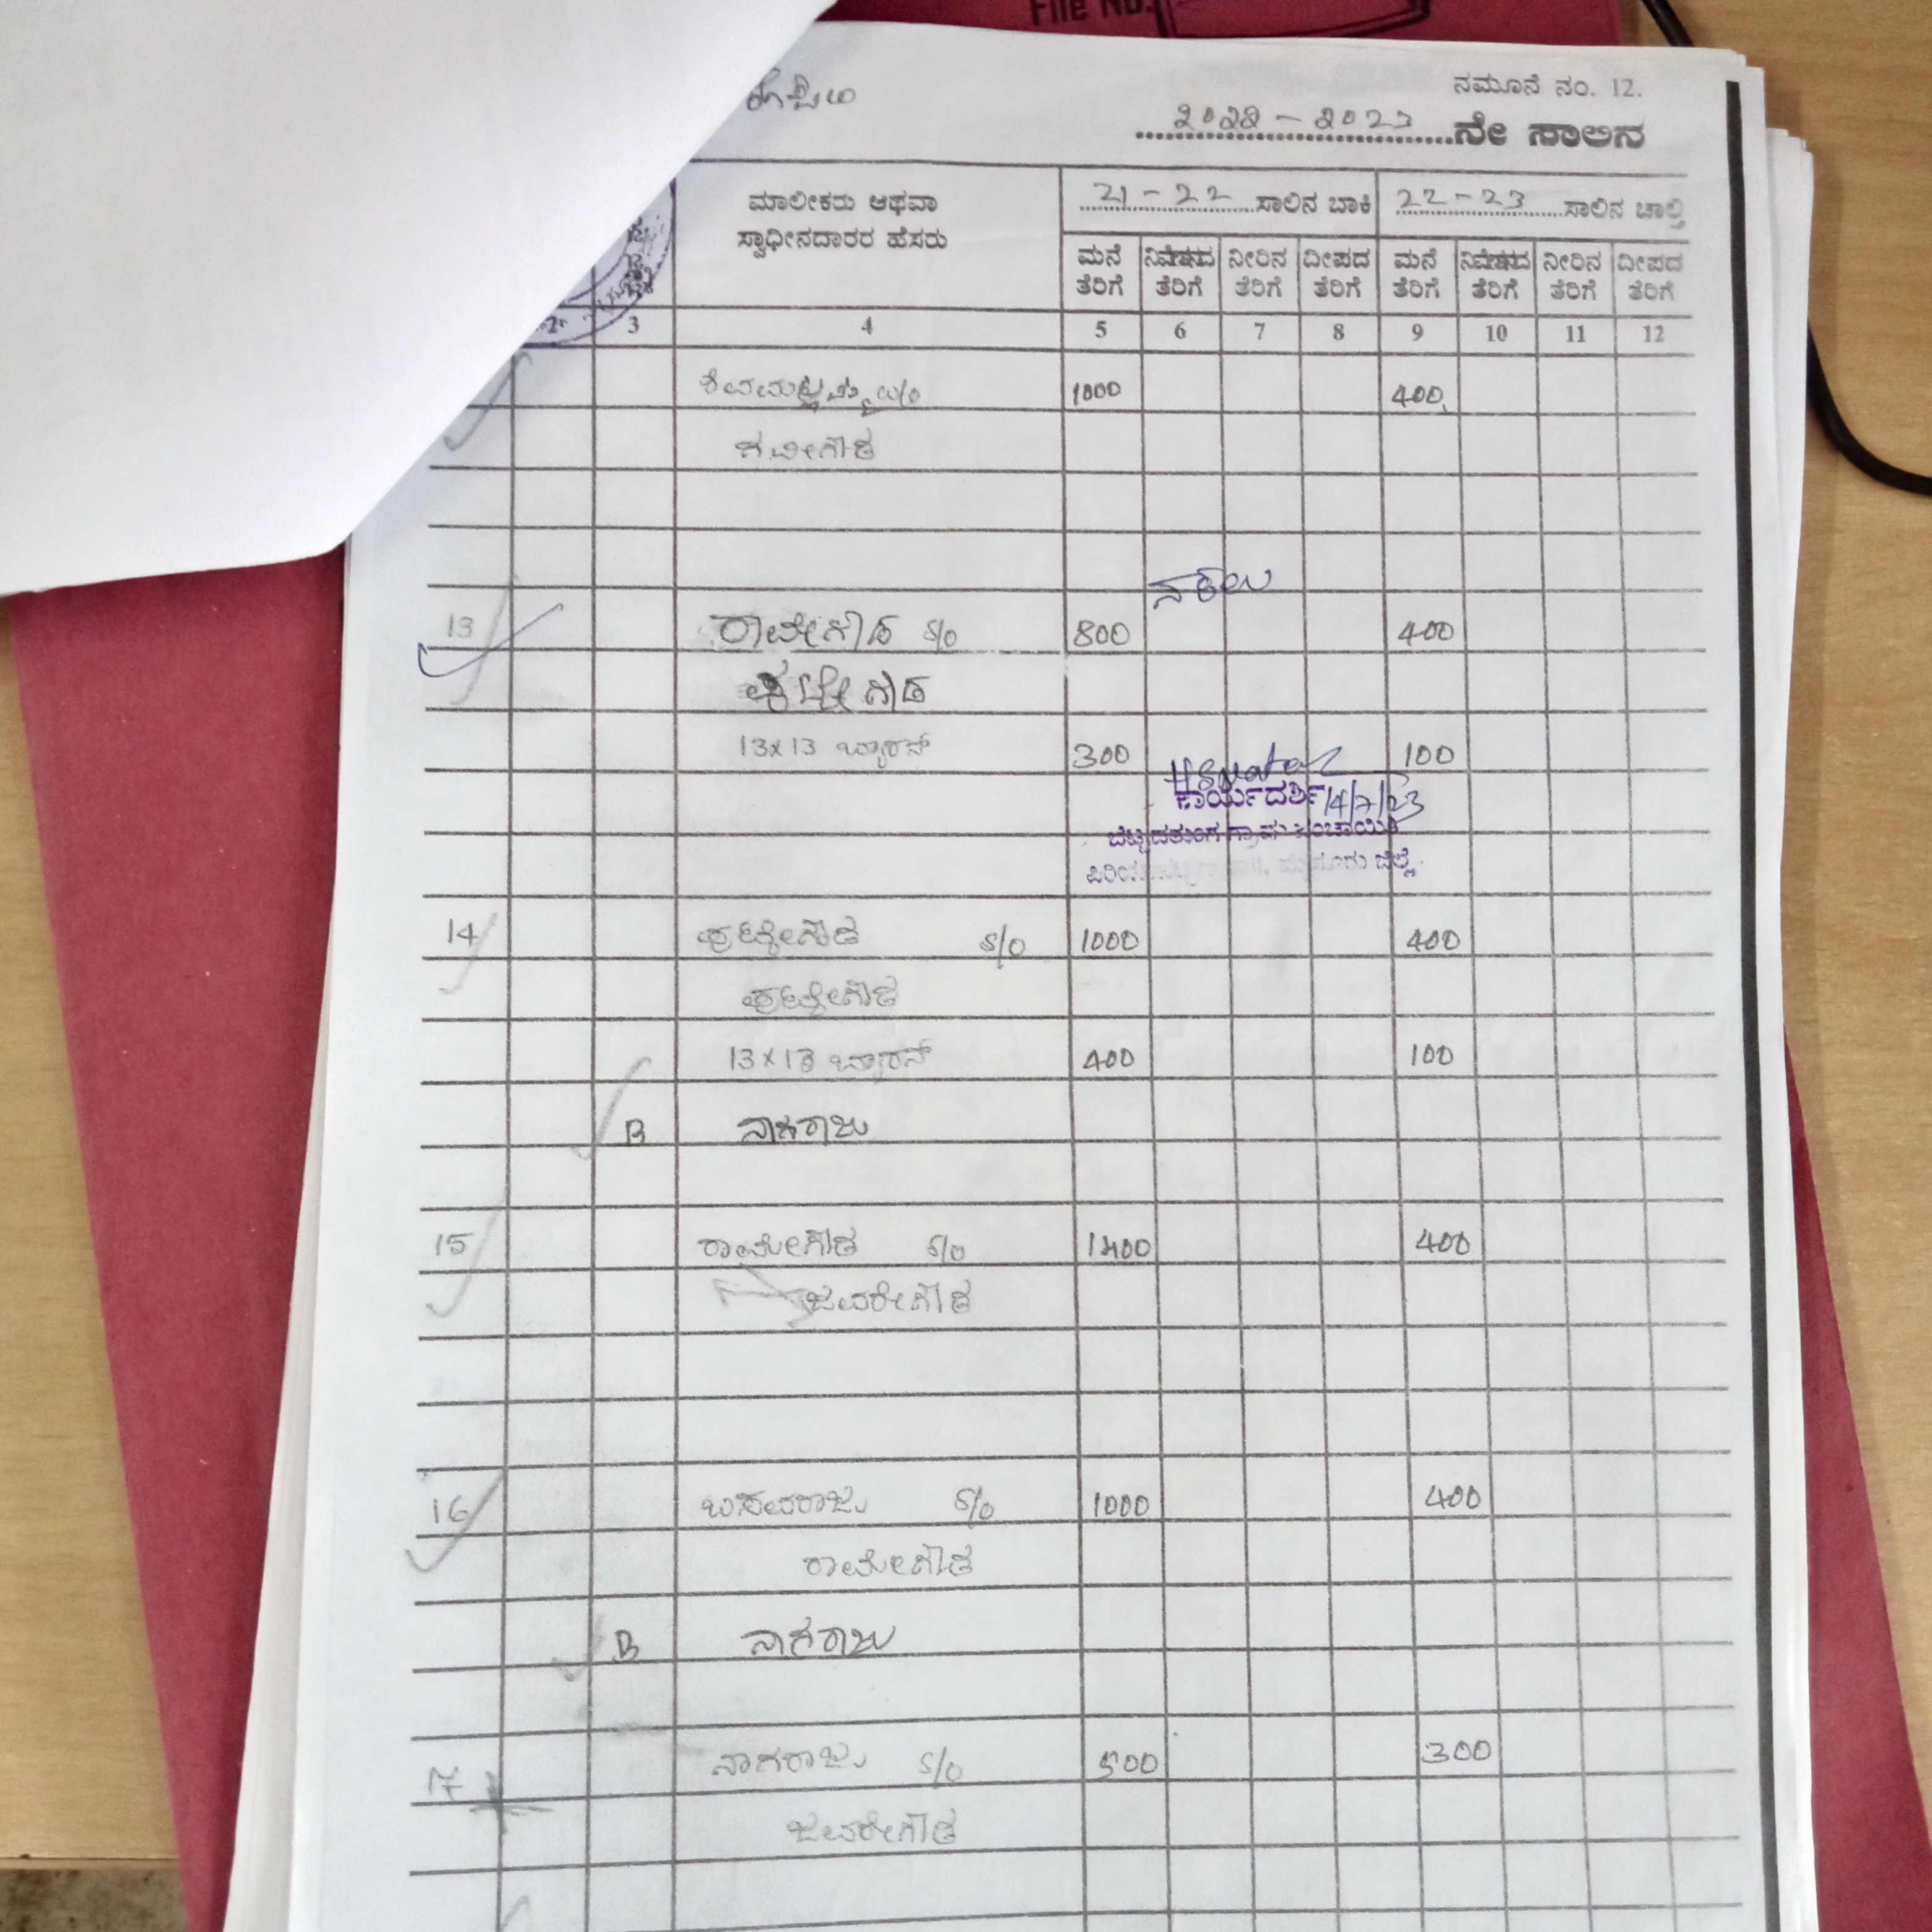 File No.
ಕೊಪ್ಪಲು
ನಮೂನೆ ನಂ. 12.
2022 - 2023 ನೇ ಸಾಲಿನ
ಮಾಲೀಕರು ಆಥವಾ
ಸ್ವಾಧೀನದಾರರ ಹೆಸರು
21 - 22 ಸಾಲಿನ ಬಾಕಿ 22-23 ಸಾಲಿನ ಚಾಲ್ತಿ
ಮನೆ ನಿವೇಶನದ ನೀರಿನ ದೀಪದ ಮನೆ ನಿವೇಶನದ ನೀರಿನ ದೀಪದ
ತೆರಿಗೆ ತೆರಿಗೆ ತೆರಿಗೆ ತೆರಿಗೆ ತೆರಿಗೆ ತೆರಿಗೆ ತೆರಿಗೆ ತೆರಿಗೆ
2 3 4 5 6 7 8 9 10 11 12
1000 400
ನಕಲು
13 s/o 800 400
13x13 300 100
ಕಾರ್ಯದರ್ಶಿ 14/7/23
ಬೆಟ್ಟದತುಂಗ ಗ್ರಾಮ ಪಂಚಾಯಿತಿ
ಮೈಸೂರು ಜಿಲ್ಲೆ.
14 ಪುಟ್ಟೇಗೌಡ s/o 1000 400
ಪುಟ್ಟೇಗೌಡ
13x13 400 100
B ನಾಗರಾಜು
15 ರಾಮೇಗೌಡ s/o 400
ಜವರೇಗೌಡ
16 ಬಸವರಾಜು s/o 1000 400
ರಾಮೇಗೌಡ
B ನಾಗರಾಜು
17 ನಾಗರಾಜು s/o 500 300
ಜವರೇಗೌಡ